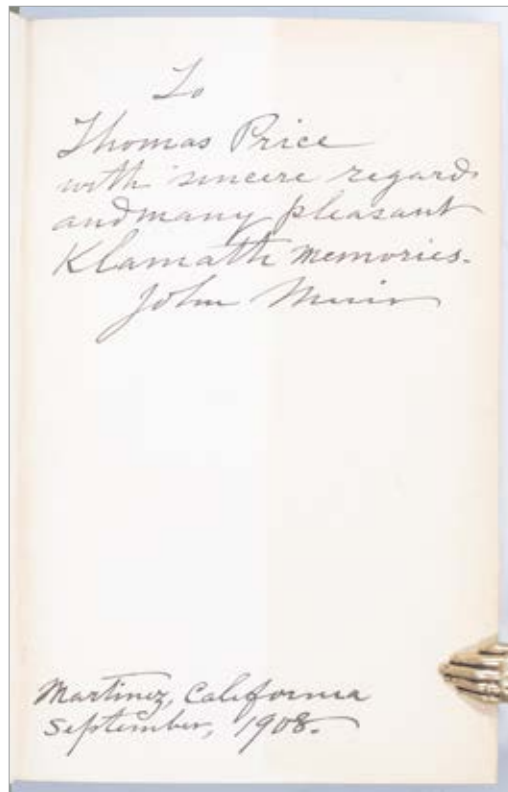 To
Thomas Price
with sincere regards
and many pleasant
Klamath memories.
John Muir
Martinez, California
September, 1908.